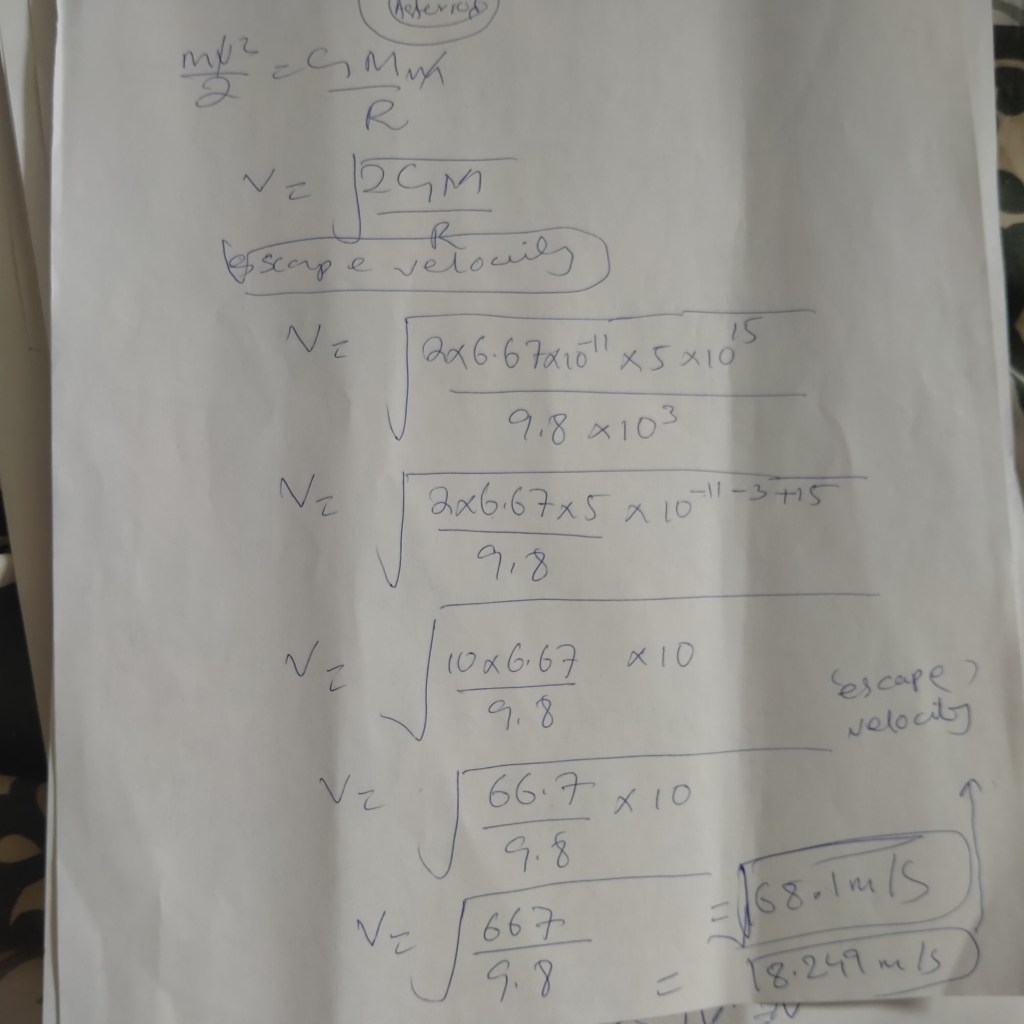 mv²/2 = GMm/R
V = √(2GM/R)
escape velocity
V = √(2×6.67×10⁻¹¹ × 5 × 10¹⁵ / 9.8 × 10³)
V = √(2×6.67×5/9.8 × 10⁻¹¹⁻³⁺¹⁵)
V = √(10×6.67/9.8 × 10)
(escape)
velocity
V = √(66.7/9.8 × 10)
V = √(667/9.8) = √68.1 m/s
= 8.249 m/s